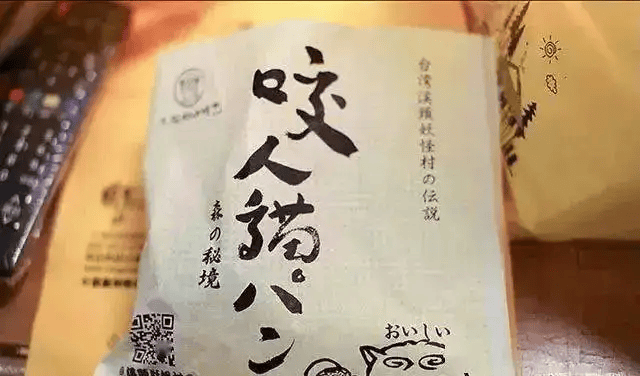 台湾溪頭妖怪村の伝説
咬人貓パン
森の秘境
おいしい